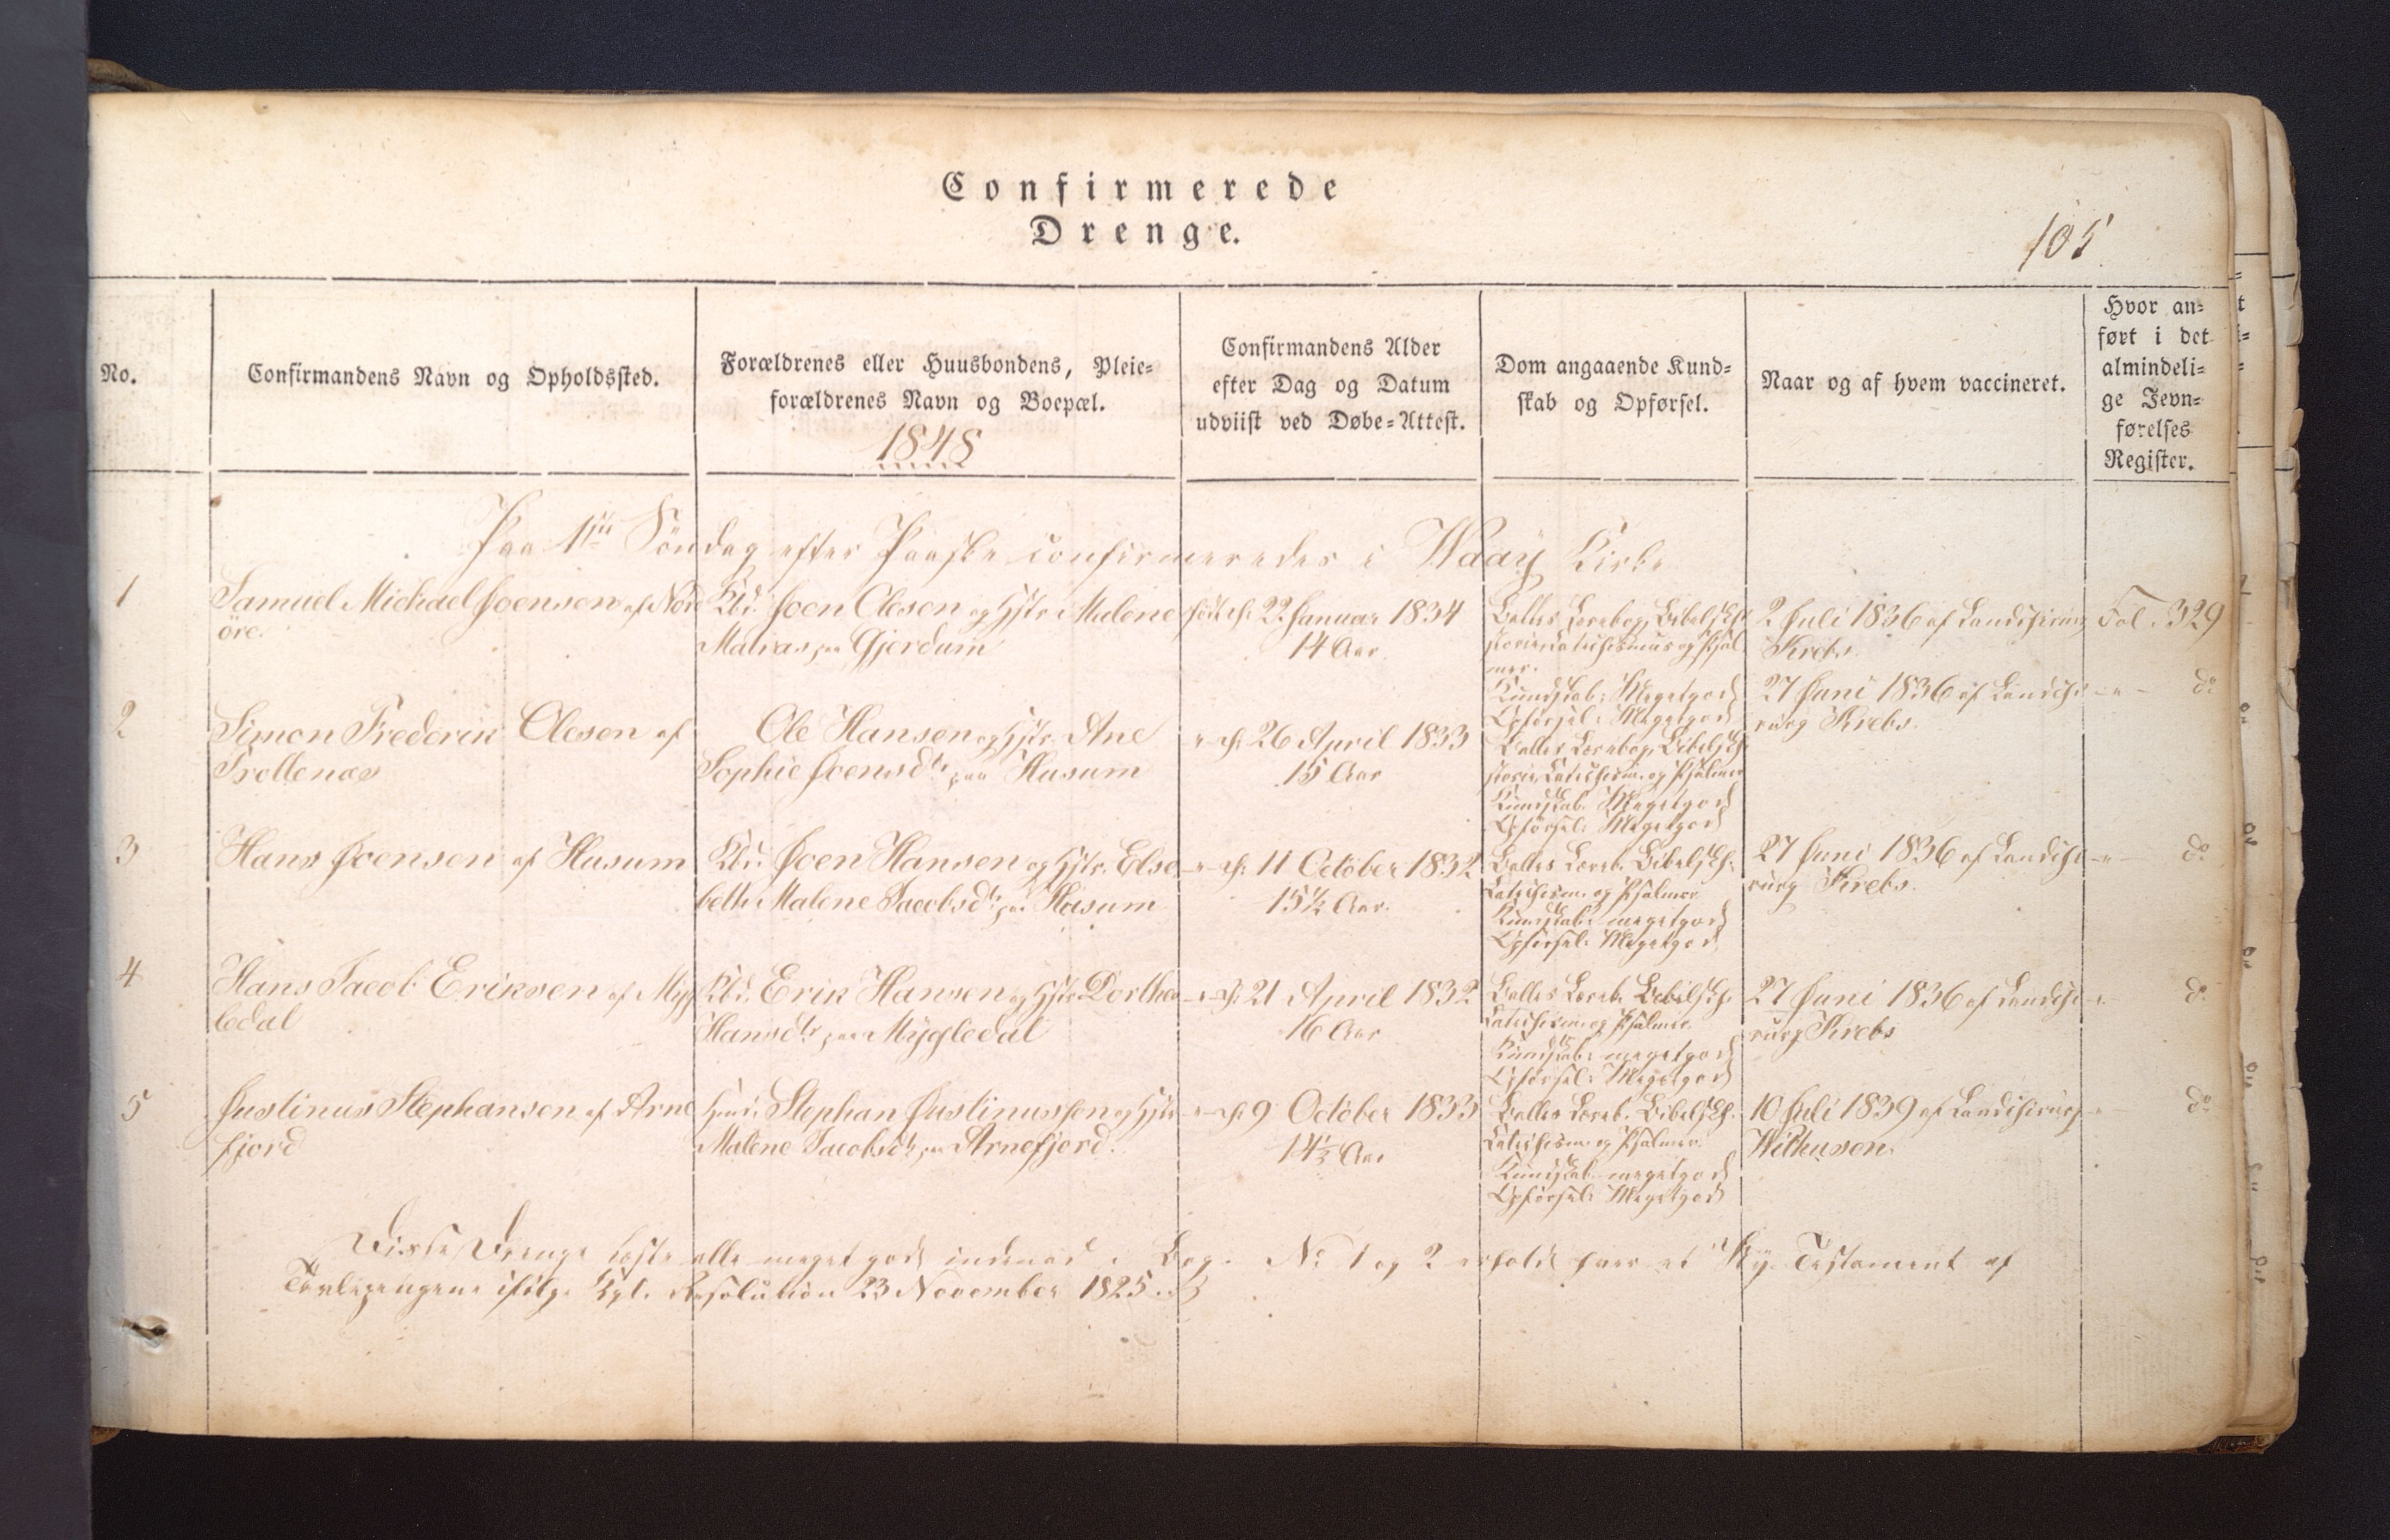 Confirmerede
Drenge.
105
No.
Confirmandens Navn og Opholdssted.
Forældrenes eller Huusbondens, Pleie=
forældrenes Navn og Boepæl.
1848
Confirmandens Alder
efter Dag og Datum
udviist ved Døbe=Attest.
Dom angaaende Kund=
skab og Opførsel.
Naar og af hvem vaccineret.
Hvor an=
ført i det
almindeli=
ge Jevn=
førelses
Register.
Paa 1ste Söndag efter Paaske confirmeredes i Waaÿ Kirke
1
Samuel Michael Joensen af Nord
öre.
Kbd. Joen Olesen og Hstr Malene
Matras paa Gjerdum
född d. 22 Januar 1834
14 Aar
Balles Lærebog, Bibelsk Hi
storie, Catechismus og Psal
mer.
Kundskab: Megetgod
Opförsel: Megetgod
2 Juli 1836 af Landchirurg
Krebs.
Fol. 329
2
Simon Frederik Olesen af
Trollenæs
Ole Hansen og Hstr. Ane
Sophie Joensdtr paa Husum
" d. 26 April 1833
15 Aar
Balles Lærebog, Bibelsk Hi
storie, Catechism. og Psalmer
Kundskab. Megetgod
Opförsel: Megetgod
27 Juni 1836 af Landchi
rurg Krebs.
- " - do
3
Hans Joensen af Husum
Kbd. Joen Hansen og Hstr. Else
beth Malene Jacobsdtr paa Husum
- " - d. 11 October 1832
15½ Aar.
Balles Læreb. Bibelsk H.
Catechism. og Psalmer
Kundskab: megetgod
Opförsel: Megetgod
27 Juni 1836 af Landchi
rurg Krebs.
- " - do
4
Hans Jacob Eriksen af Myg
ledal
Kbd. Erik Hansen og Hstr Dorthea
Hansdtr paa Mÿgledal
- " - d. 21 April 1832
16 Aar
Balles Læreb. Bibelsk H.
Catechism. og Psalmer
Kundskab: megetgod
Opförsel: Megetgod
27 Juni 1836 af Landchi
rurg Krebs
- " - do
5
Justinus Stephansen af Arne
fjord
Stephan Justinussen og Hstr
Malene Jacobsdtr paa Arnefjord.
- " - d. 9 October 1833
14½ Aar
Balles Læreb. Bibelsk H.
Catechism. og Psalmer.
Kundskab: megetgod
Opförsel: Megetgod
10 Juli 1839 af Landchirurg
Withusen.
- " - do
Disse Drenge læste alle meget godt indenad i Bog. No 1 og 2 erholdt hver et Ny Testament af
Tavlepengene ifölge Kgl. Resolution 23 November 1825.